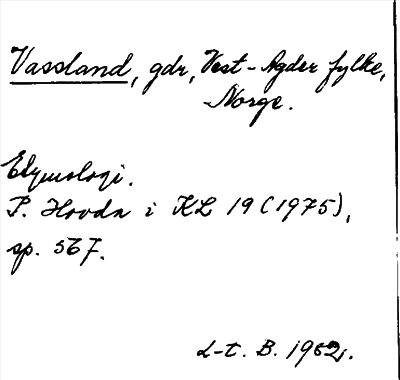 Vassland, gdr, Vest-Agder fylke,
Norge.
Etymologi.
P. Hovda i KL 19 (1975),
sp. 567.
L-t. B.